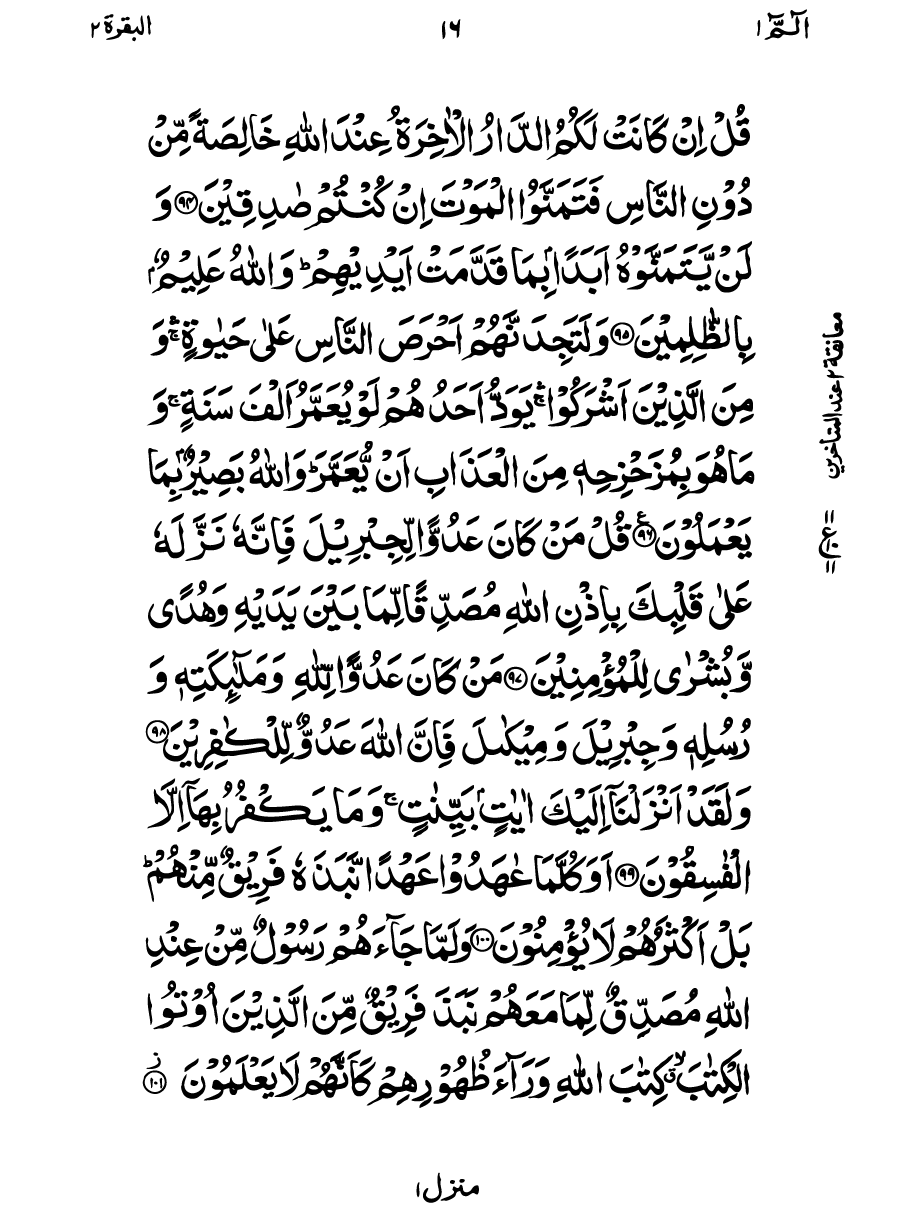 الٓـمّٓ ١ ١٦ البقرة ٢
قُلْ اِنْ كَانَتْ لَكُمُ الدَّارُ الْاٰخِرَةُ عِنْدَ اللّٰهِ خَالِصَةً مِّنْ
دُوْنِ النَّاسِ فَتَمَنَّوُا الْمَوْتَ اِنْ كُنْتُمْ صٰدِقِيْنَ ﴿٩٤﴾ وَ
لَنْ يَّتَمَنَّوْهُ اَبَدًۢا بِمَا قَدَّمَتْ اَيْدِيْهِمْ ؕ وَاللّٰهُ عَلِيْمٌۢ
بِالظّٰلِمِيْنَ ﴿٩٥﴾ وَلَتَجِدَنَّهُمْ اَحْرَصَ النَّاسِ عَلٰى حَيٰوةٍ ۛۚ وَ
مِنَ الَّذِيْنَ اَشْرَكُوْا ۛۚ يَوَدُّ اَحَدُهُمْ لَوْ يُعَمَّرُ اَلْفَ سَنَةٍ ۚ وَ
مَا هُوَ بِمُزَحْزِحِهٖ مِنَ الْعَذَابِ اَنْ يُّعَمَّرَ ؕ وَاللّٰهُ بَصِيْرٌۢ بِمَا
يَعْمَلُوْنَ ﴿٩٦﴾ ع قُلْ مَنْ كَانَ عَدُوًّا لِّجِبْرِيْلَ فَاِنَّهٗ نَزَّلَهٗ
عَلٰى قَلْبِكَ بِاِذْنِ اللّٰهِ مُصَدِّقًا لِّمَا بَيْنَ يَدَيْهِ وَهُدًى
وَّبُشْرٰى لِلْمُؤْمِنِيْنَ ﴿٩٧﴾ مَنْ كَانَ عَدُوًّا لِّلّٰهِ وَمَلٰٓئِكَتِهٖ وَ
رُسُلِهٖ وَجِبْرِيْلَ وَمِيْكٰىلَ فَاِنَّ اللّٰهَ عَدُوٌّ لِّلْكٰفِرِيْنَ ﴿٩٨﴾
وَلَقَدْ اَنْزَلْنَاۤ اِلَيْكَ اٰيٰتٍۭ بَيِّنٰتٍ ۚ وَمَا يَكْفُرُ بِهَاۤ اِلَّا
الْفٰسِقُوْنَ ﴿٩٩﴾ اَوَكُلَّمَا عٰهَدُوْا عَهْدًا نَّبَذَهٗ فَرِيْقٌ مِّنْهُمْ ؕ
بَلْ اَكْثَرُهُمْ لَا يُؤْمِنُوْنَ ﴿١٠٠﴾ وَلَمَّا جَآءَهُمْ رَسُوْلٌ مِّنْ عِنْدِ
اللّٰهِ مُصَدِّقٌ لِّمَا مَعَهُمْ نَبَذَ فَرِيْقٌ مِّنَ الَّذِيْنَ اُوْتُوا
الْكِتٰبَ ۙۗ كِتٰبَ اللّٰهِ وَرَآءَ ظُهُوْرِهِمْ كَاَنَّهُمْ لَا يَعْلَمُوْنَ ﴿١٠١﴾ ز
معانقة ٢ عند المتاخرين
منزل ١